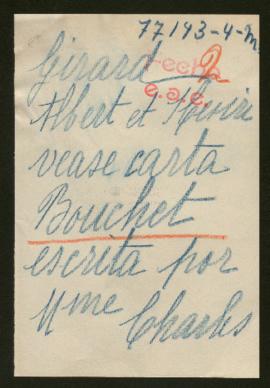 77193-4-M.
Girard 2
Albert et
vease carta
Bouchet
escrita por
Mme Charles